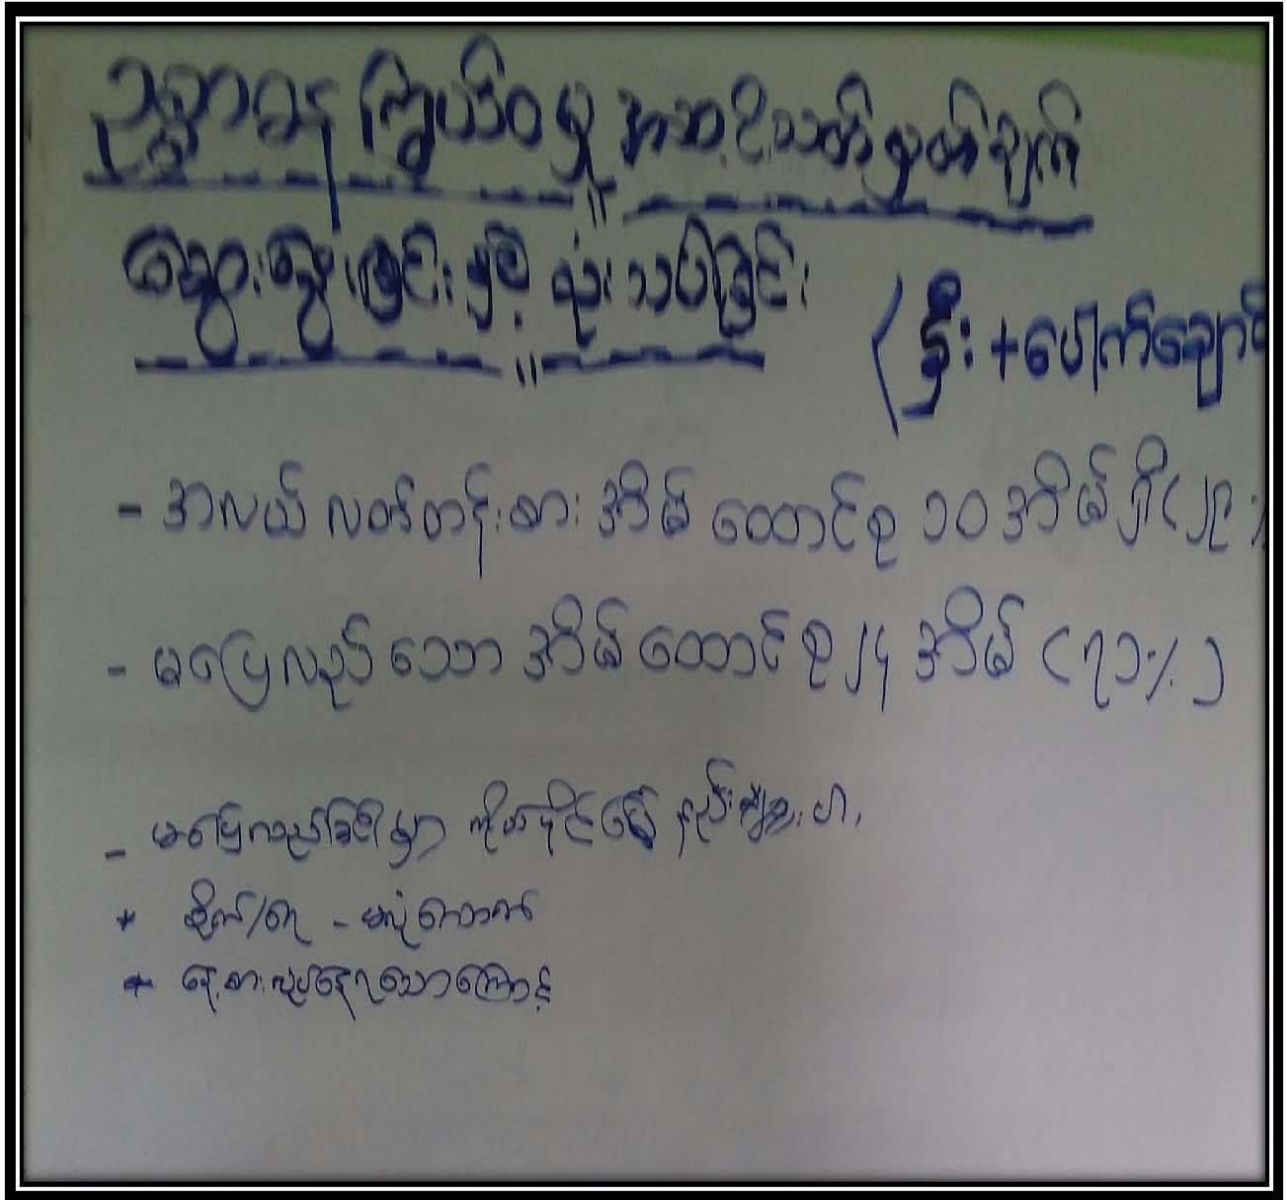 ဥစ္စာဓန ကြွယ်ဝမှု အဆင့်သတ်မှတ်ချက်
ဆွေးနွေးခြင်းနှင့် သုံးသပ်ခြင်း
(နှီး+ပေါက်ချောင်
- အလယ်လတ်တန်းစား အိမ်ထောင်စု ၁၀ အိမ်ရှိ (၂၉%
- မပြေလည်သော အိမ်ထောင်စု ၂၄ အိမ် (၇၁%)
- မပြေလည်ခြင်းမှာ ကိုယ်ပိုင်မြေ နည်းပါး
* စိုက်/ရေ - မလုံလောက်
* နေ့စားလုပ်နေရသောကြောင့်